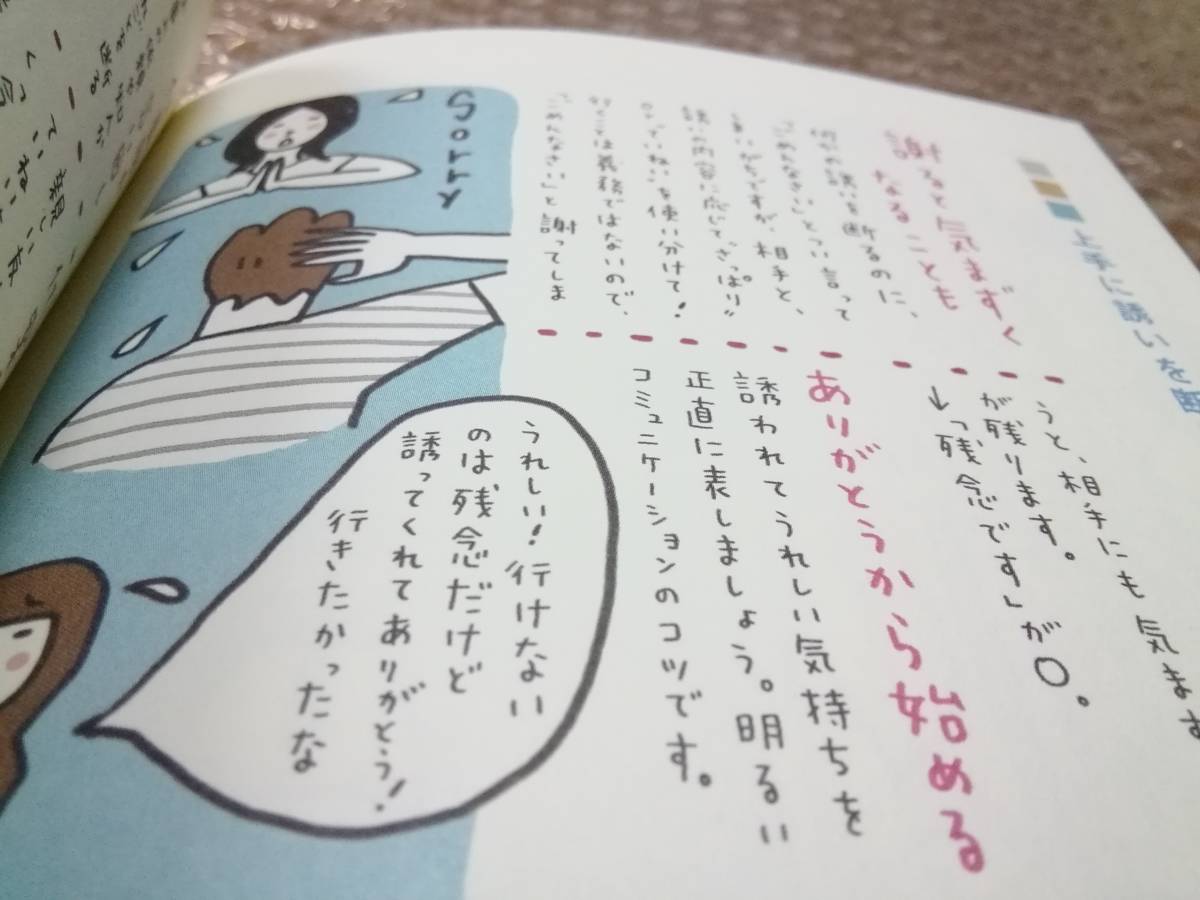 上手に誘いを断
謝ると気まずく
なることも
何かの誘いを断るのに、
「ごめんなさい」とつい言って
しまいがちですが、相手と、
誘いの内容に応じて"さっぱり"
"ていねい"を使い分けて!
行くことは義務ではないので、
「ごめんなさい」と謝ってしま
うと、相手にも気まず
が残ります。
→「残念です」が○。
ありがとうから始める
誘われてうれしい気持ちを
正直に表しましょう。明るい
コミュニケーションのコツです。
Sorry
うれしい!行けない
のは残念だけど
誘ってくれてありがとう!
行きたかったな